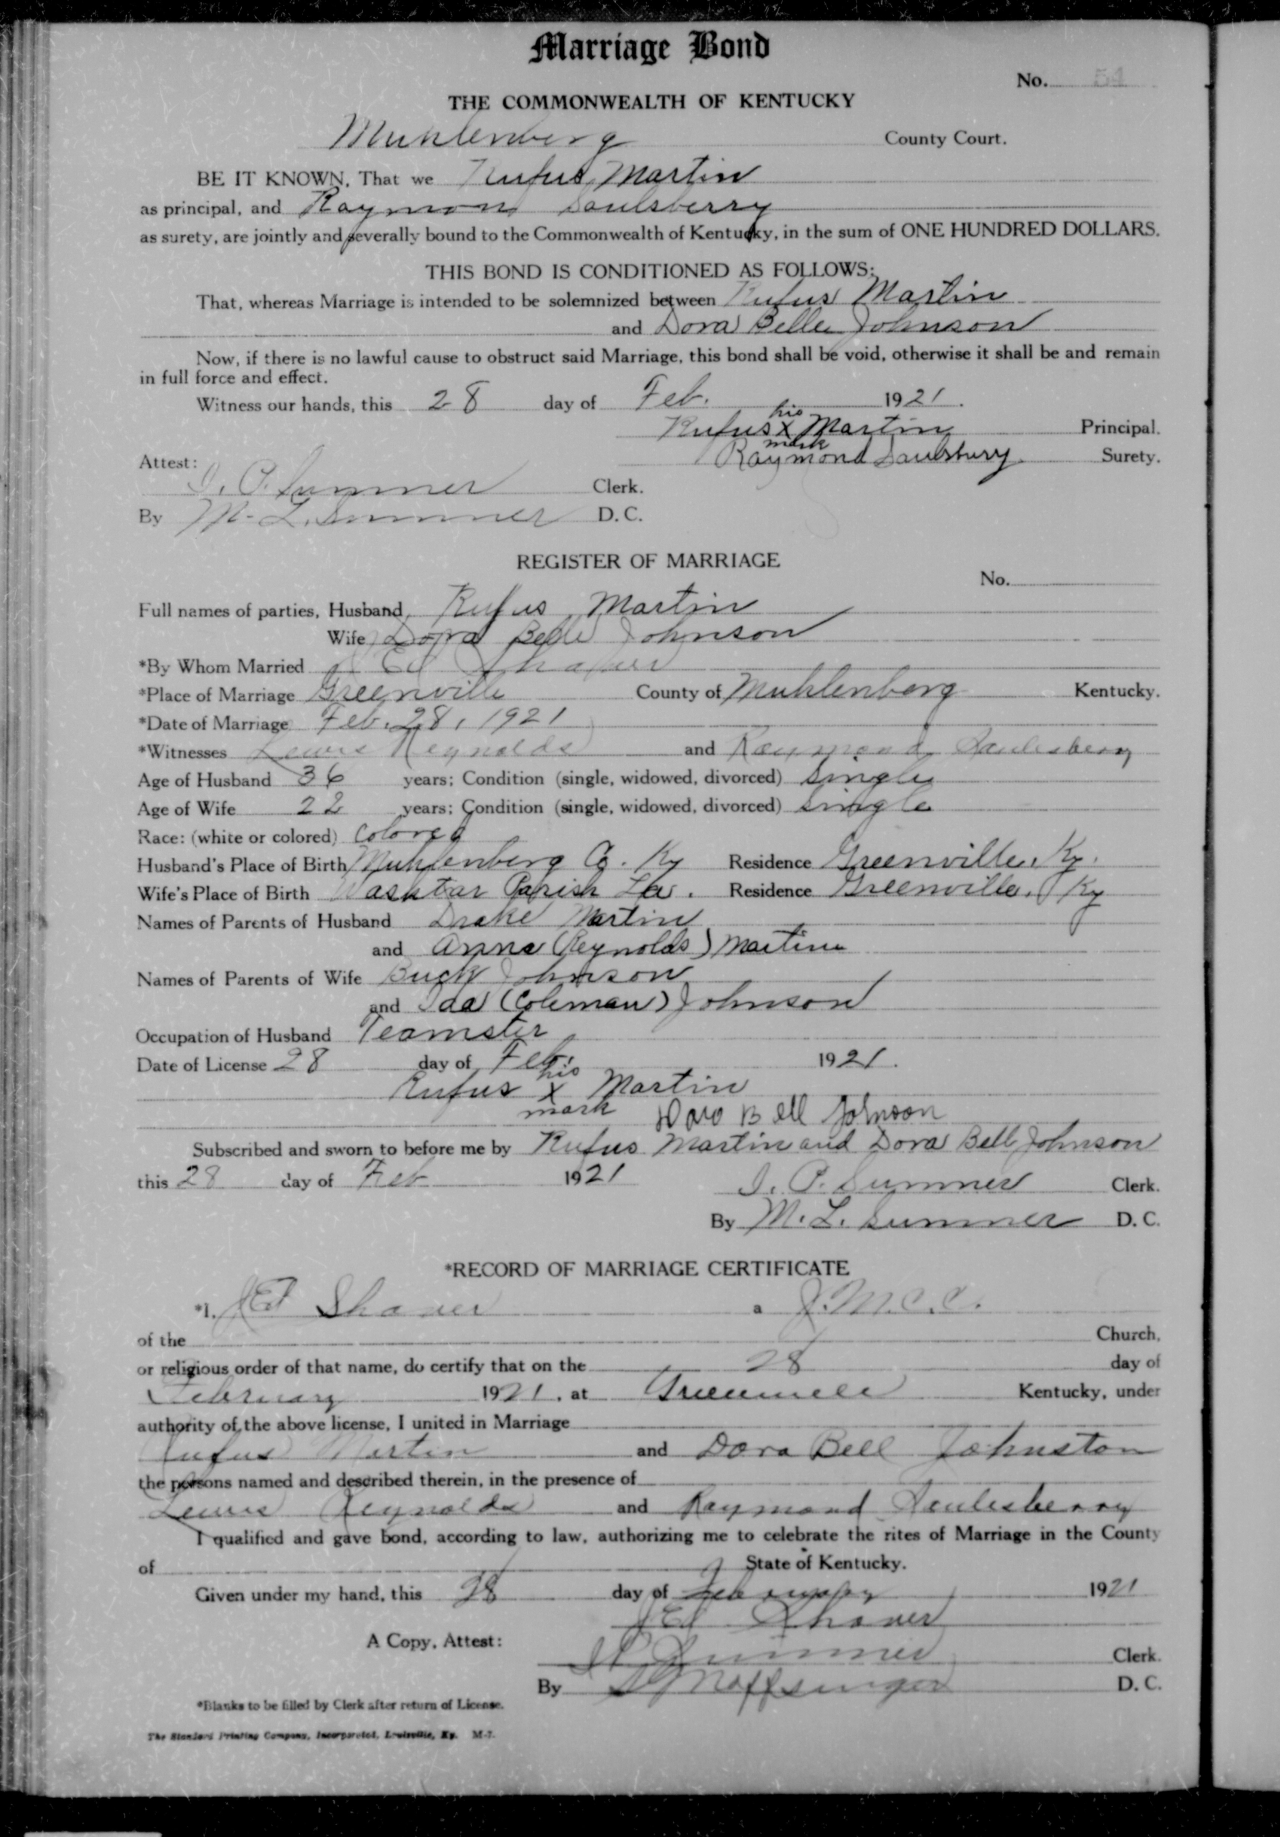 Marriage Bond
No. 54
THE COMMONWEALTH OF KENTUCKY
Muhlenberg County Court.
BE IT KNOWN, That we Rufus Martin
as principal, and Raymon Saulsberry
as surety, are jointly and severally bound to the Commonwealth of Kentucky, in the sum of ONE HUNDRED DOLLARS.
THIS BOND IS CONDITIONED AS FOLLOWS:
That, whereas Marriage is intended to be solemnized between Rufus Martin
and Dora Belle Johnson
Now, if there is no lawful cause to obstruct said Marriage, this bond shall be void, otherwise it shall be and remain
in full force and effect.
Witness our hands, this 28 day of Feb. 1921.
his
Rufus X Martin Principal.
mark
Raymond Saulsbury Surety.
Attest:
I. P. Summer Clerk.
By M. L. Summer D. C.
REGISTER OF MARRIAGE
No.
Full names of parties, Husband Rufus Martin
Wife Dora Belle Johnson
*By Whom Married J Ed Shaver
*Place of Marriage Greenville County of Muhlenberg Kentucky.
*Date of Marriage Feb. 28, 1921
*Witnesses Lewis Reynolds and Raymond Saulesberry
Age of Husband 36 years; Condition (single, widowed, divorced) Single
Age of Wife 22 years; Condition (single, widowed, divorced) Single
Race: (white or colored) Colored
Husband's Place of Birth Muhlenberg Co. Ky Residence Greenville, Ky.
Wife's Place of Birth Washtar Parish La. Residence Greenville, Ky
Names of Parents of Husband Drake Martin
and Anna (Reynolds) Martin
Names of Parents of Wife Buck Johnson
and Ida (Coleman) Johnson
Occupation of Husband Teamster
Date of License 28 day of Feb. 1921.
his
Rufus X Martin
mark
Dora Bell Johnson
Subscribed and sworn to before me by Rufus Martin and Dora Bell Johnson
this 28 day of Feb 1921
I. P. Summer Clerk.
By M. L. Summer D. C.
*RECORD OF MARRIAGE CERTIFICATE
*I, J Ed Shaver a J. M. C. C.
of the Church,
or religious order of that name, do certify that on the 28 day of
February 1921, at Greenville Kentucky, under
authority of the above license, I united in Marriage
Rufus Martin and Dora Bell Johnston
the persons named and described therein, in the presence of
Lewis Reynolds and Raymond Saulesberry
I qualified and gave bond, according to law, authorizing me to celebrate the rites of Marriage in the County
of State of Kentucky.
Given under my hand, this 28 day of February 1921
J Ed Shaver
A Copy, Attest:
I P Summer Clerk.
By Noffsinger D. C.
*Blanks to be filled by Clerk after return of License.
The Standard Printing Company, Incorporated, Louisville, Ky. M-7.